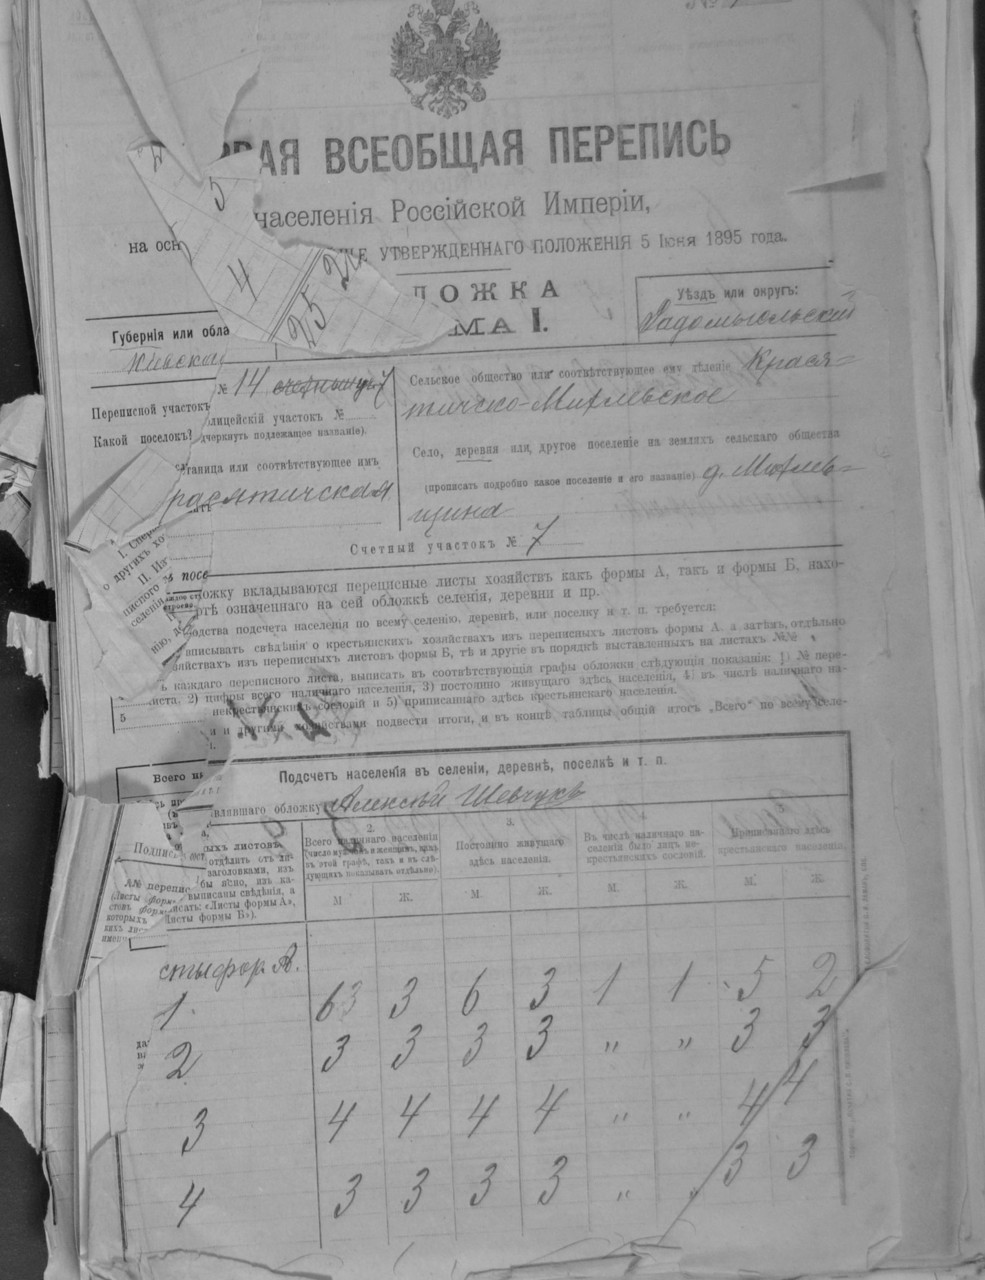 5
4
25 2
РВАЯ ВСЕОБЩАЯ ПЕРЕПИСЬ
населенія Россійской Имперіи,
на осн УТВЕРЖДЕННАГО ПОЛОЖЕНІЯ 5 Іюня 1895 года.
ЛОЖКА
МА I.
Губернія или обла
Кіевска
Уѣздъ или округъ:
Радомысльскій
Переписной участокъ № 14
лицейскій участокъ №
Какой поселокъ? дчеркнуть подлежащее названіе).
таница или соотвѣтствующее имъ
расятичская
Сельское общество или соотвѣтствующее ему дѣленіе Крася=
тичско-Михлевское
Село, деревня или другое поселеніе на земляхъ сельскаго общества
(прописать подробно какое поселеніе и его названіе) д. Михлев=
щина
Счетный участокъ № 7
ложку вкладываются переписные листы хозяйствъ какъ формы А, такъ и формы Б, нахо-
ертѣ означеннаго на сей обложкѣ селенія, деревни и пр.
водства подсчета населенія по всему селенію, деревнѣ, или поселку и т. п. требуется:
вписывать свѣдѣнія о крестьянскихъ хозяйствахъ изъ переписныхъ листовъ формы А. а затѣмъ, отдѣльно
зяйствахъ изъ переписныхъ листовъ формы Б, тѣ и другіе въ порядкѣ выставленныхъ на листахъ №№
ъ каждаго переписного листа, выписать въ соотвѣтствующія графы обложки слѣдующія показанія: 1) № пере-
иста, 2) цифры всего наличнаго населенія, 3) постоянно живущаго здѣсь населенія, 4) въ числѣ наличнаго на-
некрестьянскихъ сословій и 5) приписаннаго здѣсь крестьянскаго населенія.
и и другимъ хозяйствами подвести итоги, и въ концѣ таблицы общій итогъ „Всего" по всему селе-
5
Всего
Подсчетъ населенія въ селеніи, деревнѣ, поселкѣ и т. п.
влявшаго обложку Алексѣй Шевчукъ
ыхъ листовъ
отдѣлить отъ ли-
заголовками, изъ
бы ясно, изъ ка-
выписаны свѣдѣнія, а
исать: «Листы формы А»,
Листы формы Б»).
2.
Всего наличнаго населенія
(число мужчинъ и женщинъ, какъ
въ этой графѣ, такъ и въ слѣ-
дующихъ показывать отдѣльно).
3.
Постоянно живущаго
здѣсь населенія.
4
Въ числѣ наличнаго на-
селенія было лицъ не-
крестьянскихъ сословій.
5
Приписаннаго здѣсь
крестьянскаго населенія.
М Ж. М. Ж. М. Ж. М. Ж.
сты фор. А.
1. 6 3 6 3 1 1 5 2
2 3 3 3 3 „ „ 3 3
3 4 4 4 4 „ „ 4 4
4 3 3 3 3 „ „ 3 3